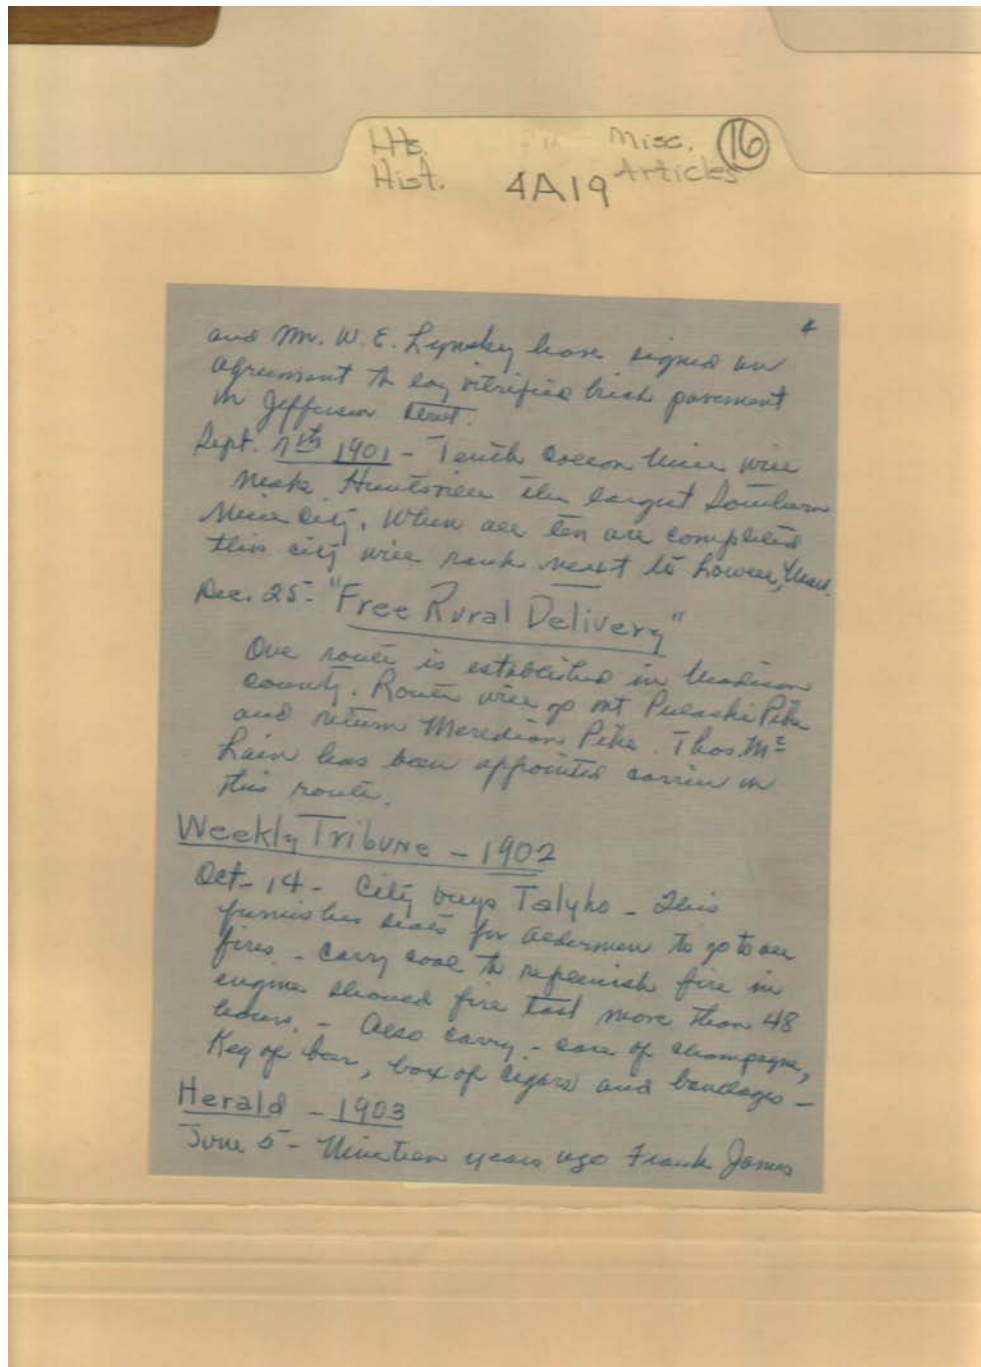 Hts. Misc. 16
Hist. 4A19 Articles
4
and Mr. W. E. Lynsky have signed an
agreement to lay vitrified brick pavement
in Jefferson street.
Sept. 7th 1901 - Tenth cotton mill will
make Huntsville the largest Southern
Mill City. When all ten are completed
this city will rank next to Lowell, Mass.
Dec. 25 - "Free Rural Delivery"
One route is established in Madison
county. Route will go out Pulaski Pike
and return Meridian Pike. Thos. Mc
Lain has been appointed carrier on
this route.
Weekly Tribune - 1902
Oct - 14 - City buys Talyho - This
furnishes seats for aldermen to go to all
fires. - Carry coal to replenish fire in
engine should fire last more than 48
hours. - Also carry - case of champagne,
Keg of beer, box of cigars and bandages -
Herald - 1903
June 5 - Nineteen years ago Frank James